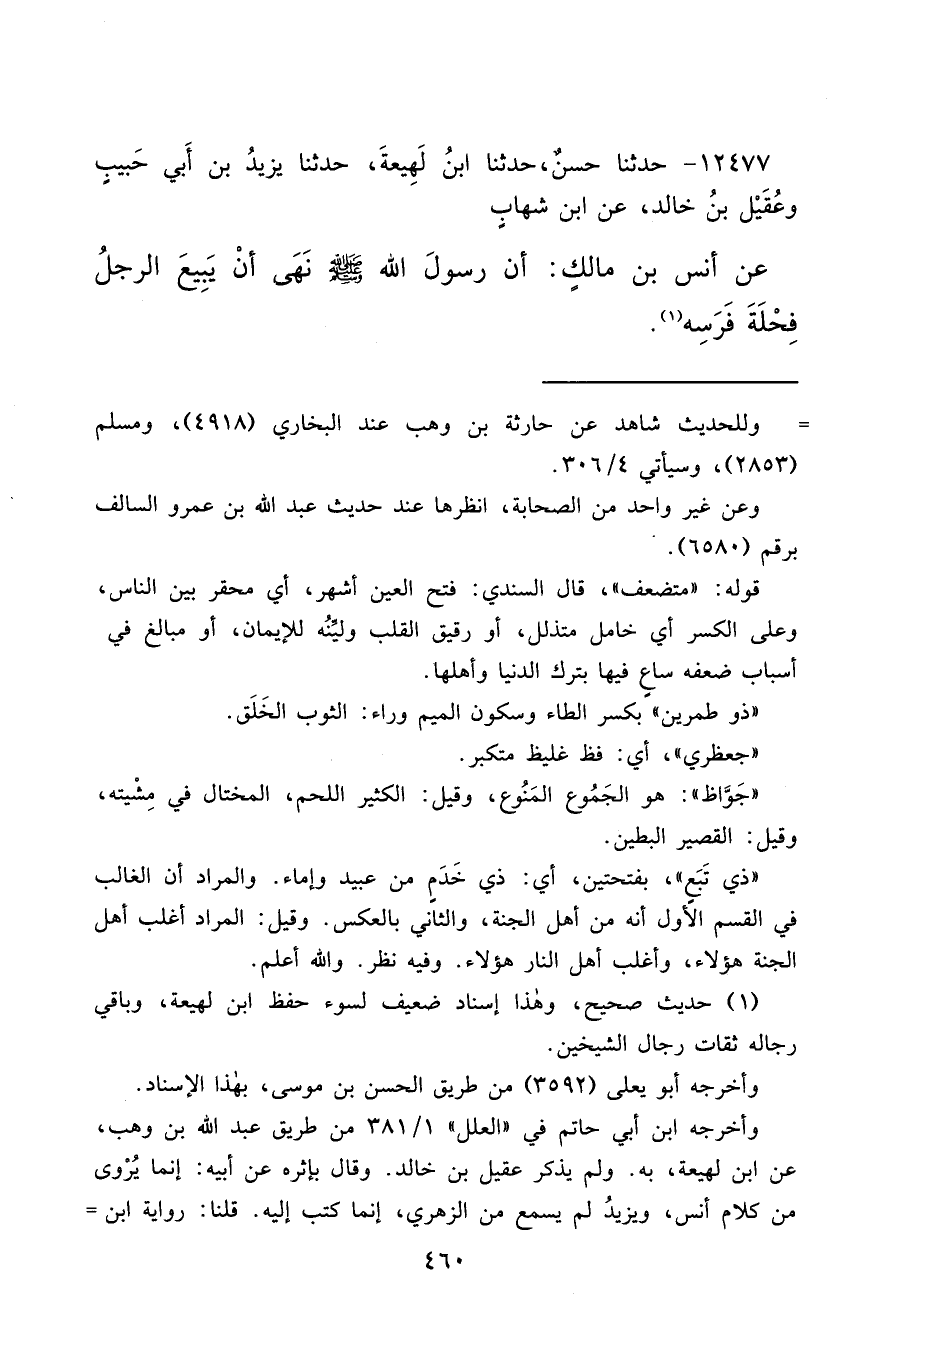 ١٢٤٧٧- حدثنا حسنٌ، حدثنا ابنُ لَهِيعةَ، حدثنا يزيدُ بن أَبي حَبيبٍ
وعُقَيْل بنُ خالد، عن ابن شهابٍ
عن أنس بن مالكٍ: أن رسولَ الله ﷺ نَهَى أنْ يَبِيعَ الرجلُ
فِحْلَةَ فَرَسِه(١).
= وللحديث شاهد عن حارثة بن وهب عند البخاري (٤٩١٨)، ومسلم
(٢٨٥٣)، وسيأتي ٣٠٦/٤.
وعن غير واحد من الصحابة، انظرها عند حديث عبد الله بن عمرو السالف
برقم (٦٥٨٠).
قوله: «متضعف»، قال السندي: فتح العين أشهر، أي محقر بين الناس،
وعلى الكسر أي خامل متذلل، أو رقيق القلب وليِّنُه للإيمان، أو مبالغ في
أسباب ضعفه ساعٍ فيها بترك الدنيا وأهلها.
«ذو طمرين» بكسر الطاء وسكون الميم وراء: الثوب الخَلَق.
«جعظري»، أي: فظ غليظ متكبر.
«جَوَّاظ»: هو الجَمُوع المَنُوع، وقيل: الكثير اللحم، المختال في مِشْيته،
وقيل: القصير البطين.
«ذي تَبَعٍ»، بفتحتين، أي: ذي خَدَمٍ من عبيد وإماء. والمراد أن الغالب
في القسم الأول أنه من أهل الجنة، والثاني بالعكس. وقيل: المراد أغلب أهل
الجنة هؤلاء، وأغلب أهل النار هؤلاء. وفيه نظر. والله أعلم.
(١) حديث صحيح، وهٰذا إسناد ضعيف لسوء حفظ ابن لهيعة، وباقي
رجاله ثقات رجال الشيخين.
وأخرجه أبو يعلى (٣٥٩٢) من طريق الحسن بن موسى، بهٰذا الإسناد.
وأخرجه ابن أبي حاتم في «العلل» ٣٨١/١ من طريق عبد الله بن وهب،
عن ابن لهيعة، به. ولم يذكر عقيل بن خالد. وقال بإثره عن أبيه: إنما يُرْوى
من كلام أنس، ويزيدُ لم يسمع من الزهري، إنما كتب إليه. قلنا: رواية ابن =
٤٦٠